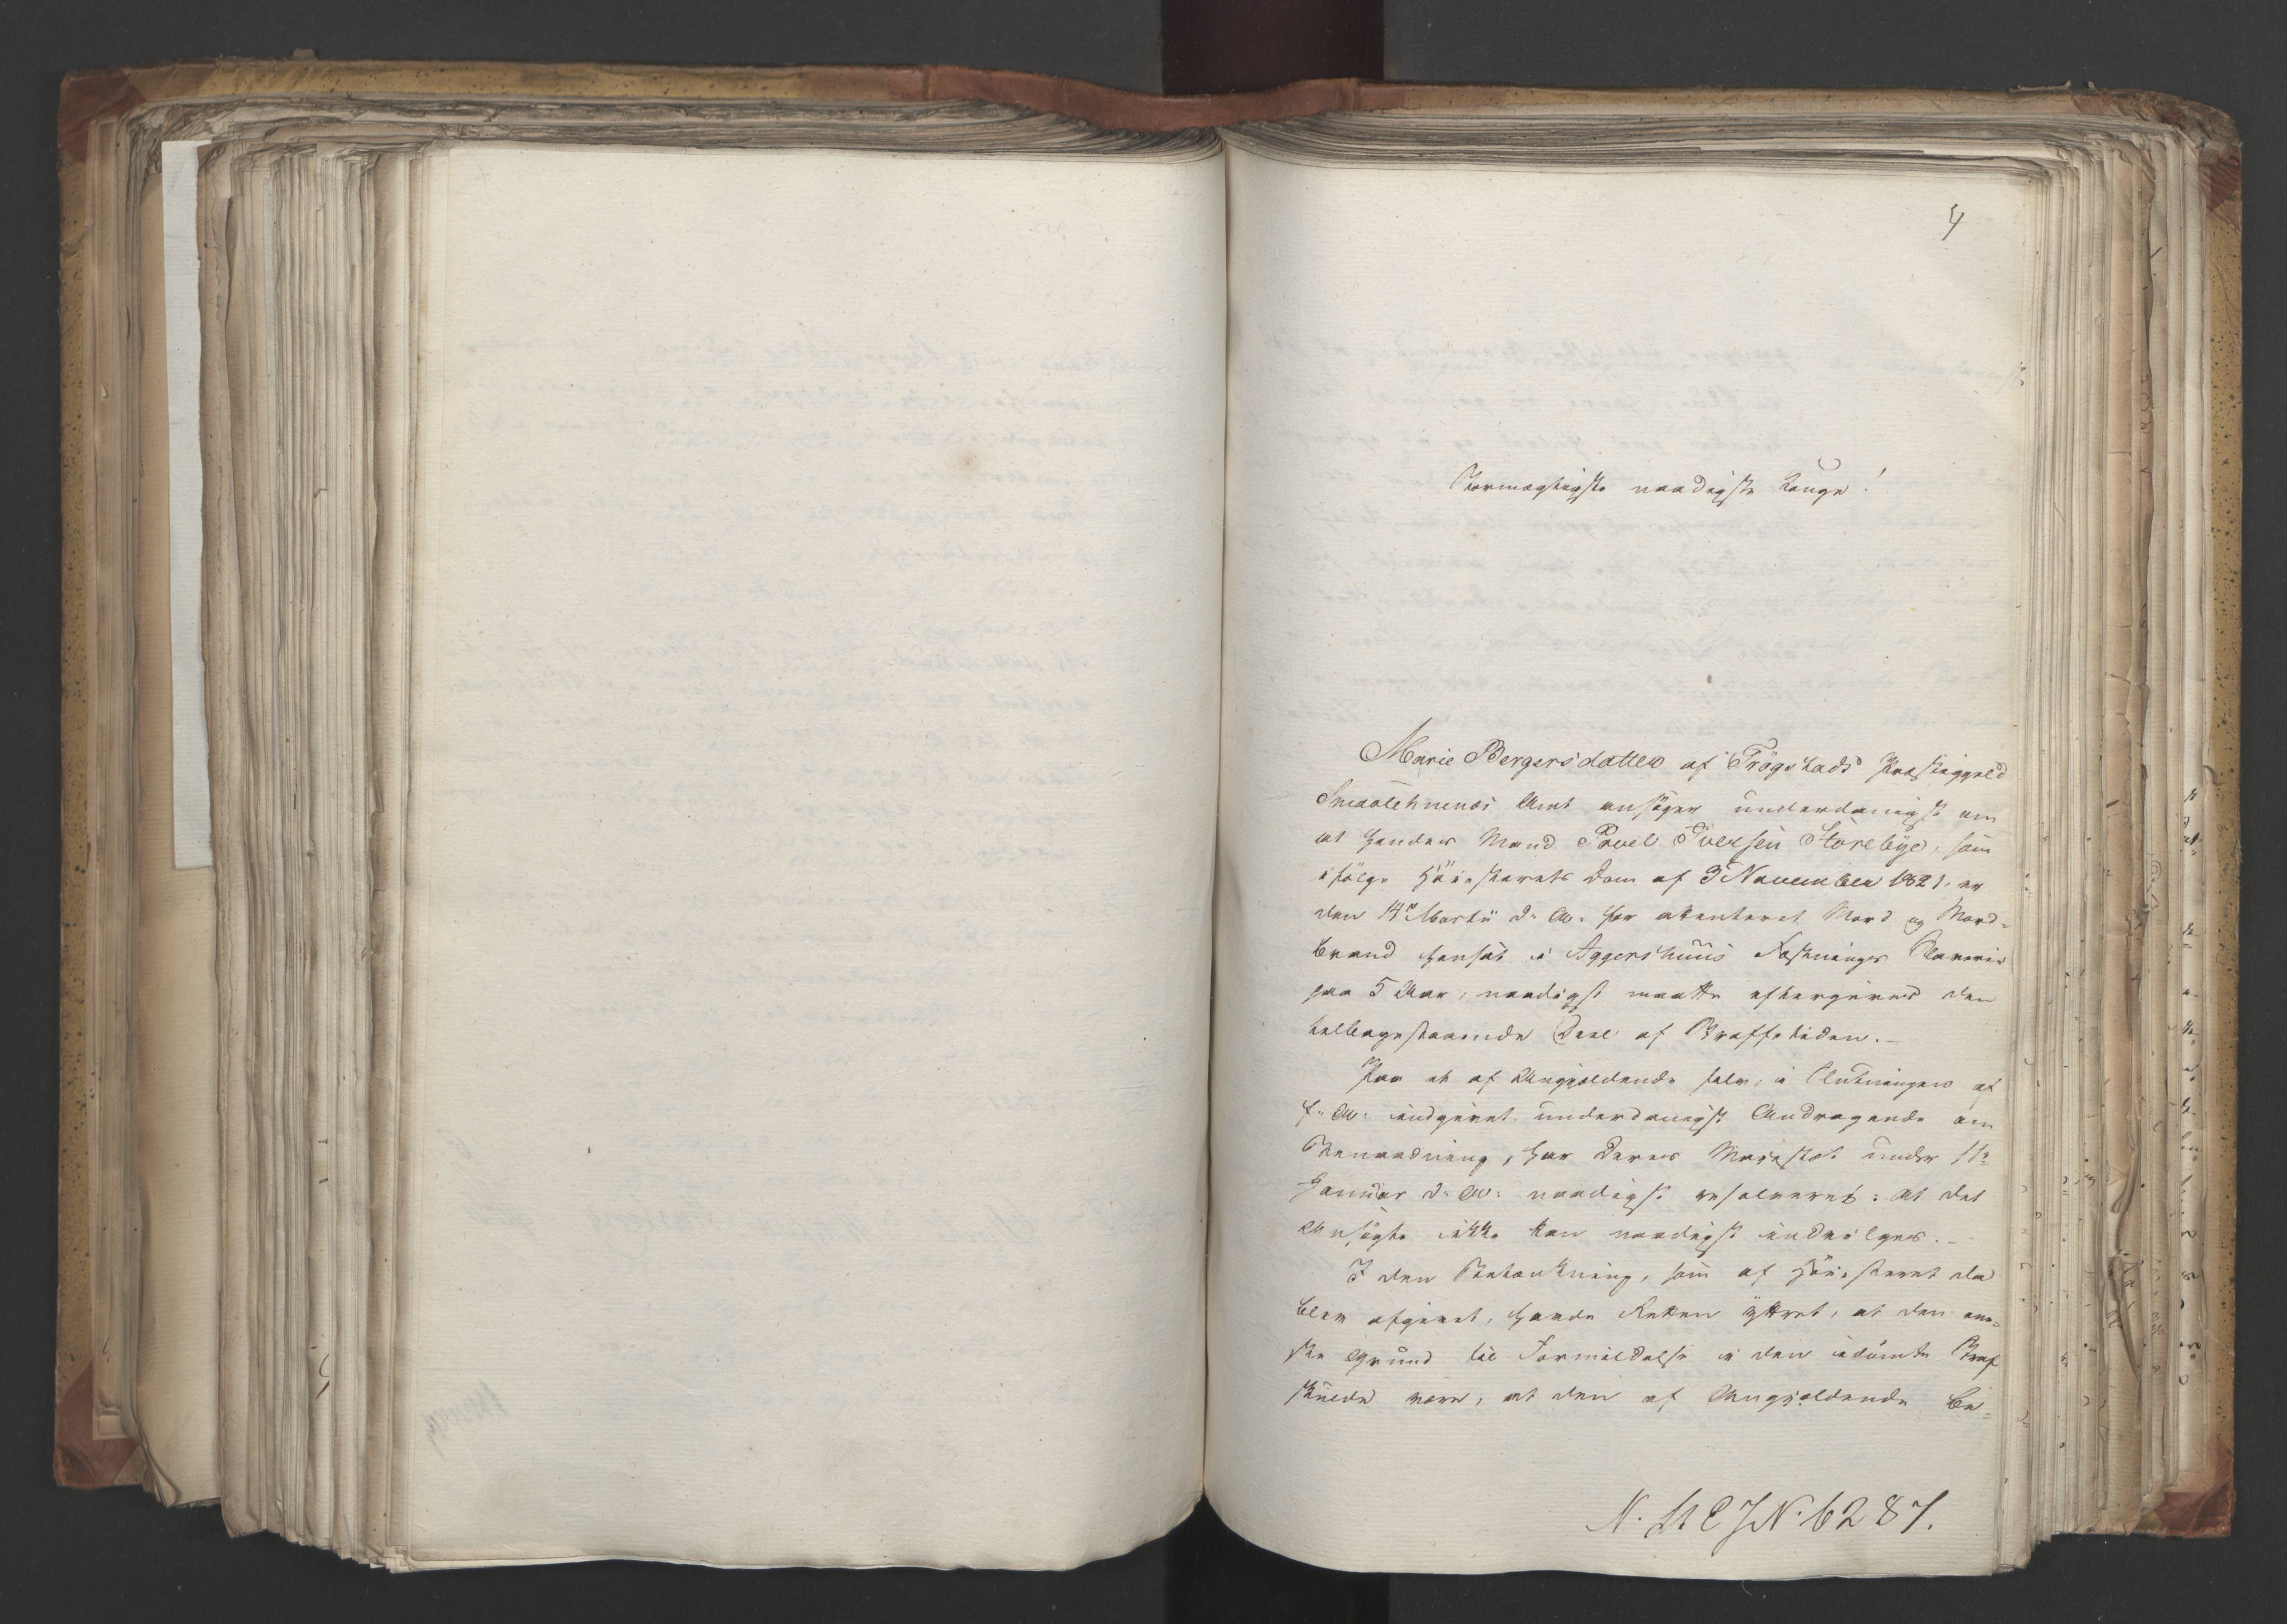 4
Stormægtigste naadigste Konge!
Marie Bergersdatter af Trögstads Præstegjeld
Smaalehnenes Amt ansøger underdanigst om
at hendes Mand Povel Iversen Storebye, som
ifölge Höiesterets Dom af 3 November 1821. er
den 14de Martii d: A: for attenteret Mord og Mord-
brand hensat i Aggershuus Fæstnings Slaverie
paa 5 Aar, naadigst maatte eftergives den
tilbagestaaende Deel af Straffetiden.-
Paa et af Angjeldende selv, i Slutningen af
f: A: indgivet underdanigst Andragende om
Benaadning, har Deres Majestæt under 11te
Januar d: A: naadigst resolveret: at det
Ansögte ikke kan naadigst indvilges.-
I den Betænkning, som af Höiesteret da
blev afgivet, havde Retten yttret, at den ene-
ste Grund til Formildelse i den idömte Straf
skulde være, at den af Angjeldende be-
N. 11 E J N. 6287.